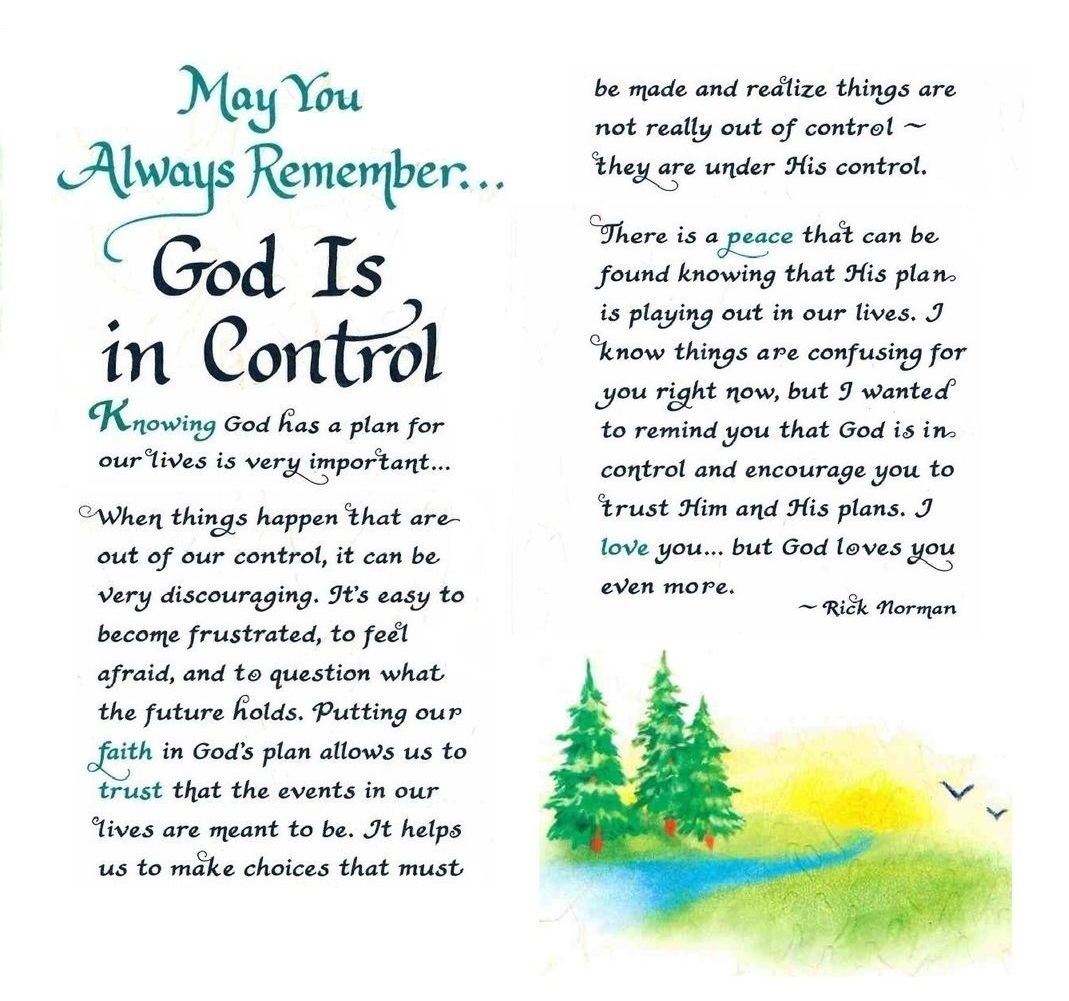 May You
Always Remember...
God Is
in Control
Knowing God has a plan for
our lives is very important...
When things happen that are
out of our control, it can be
very discouraging. It's easy to
become frustrated, to feel
afraid, and to question what
the future holds. Putting our
faith in God's plan allows us to
trust that the events in our
lives are meant to be. It helps
us to make choices that must
be made and realize things are
not really out of control ~
they are under His control.
There is a peace that can be
found knowing that His plan
is playing out in our lives. I
know things are confusing for
you right now, but I wanted
to remind you that God is in
control and encourage you to
trust Him and His plans. I
love you... but God loves you
even more.
~ Rick Norman